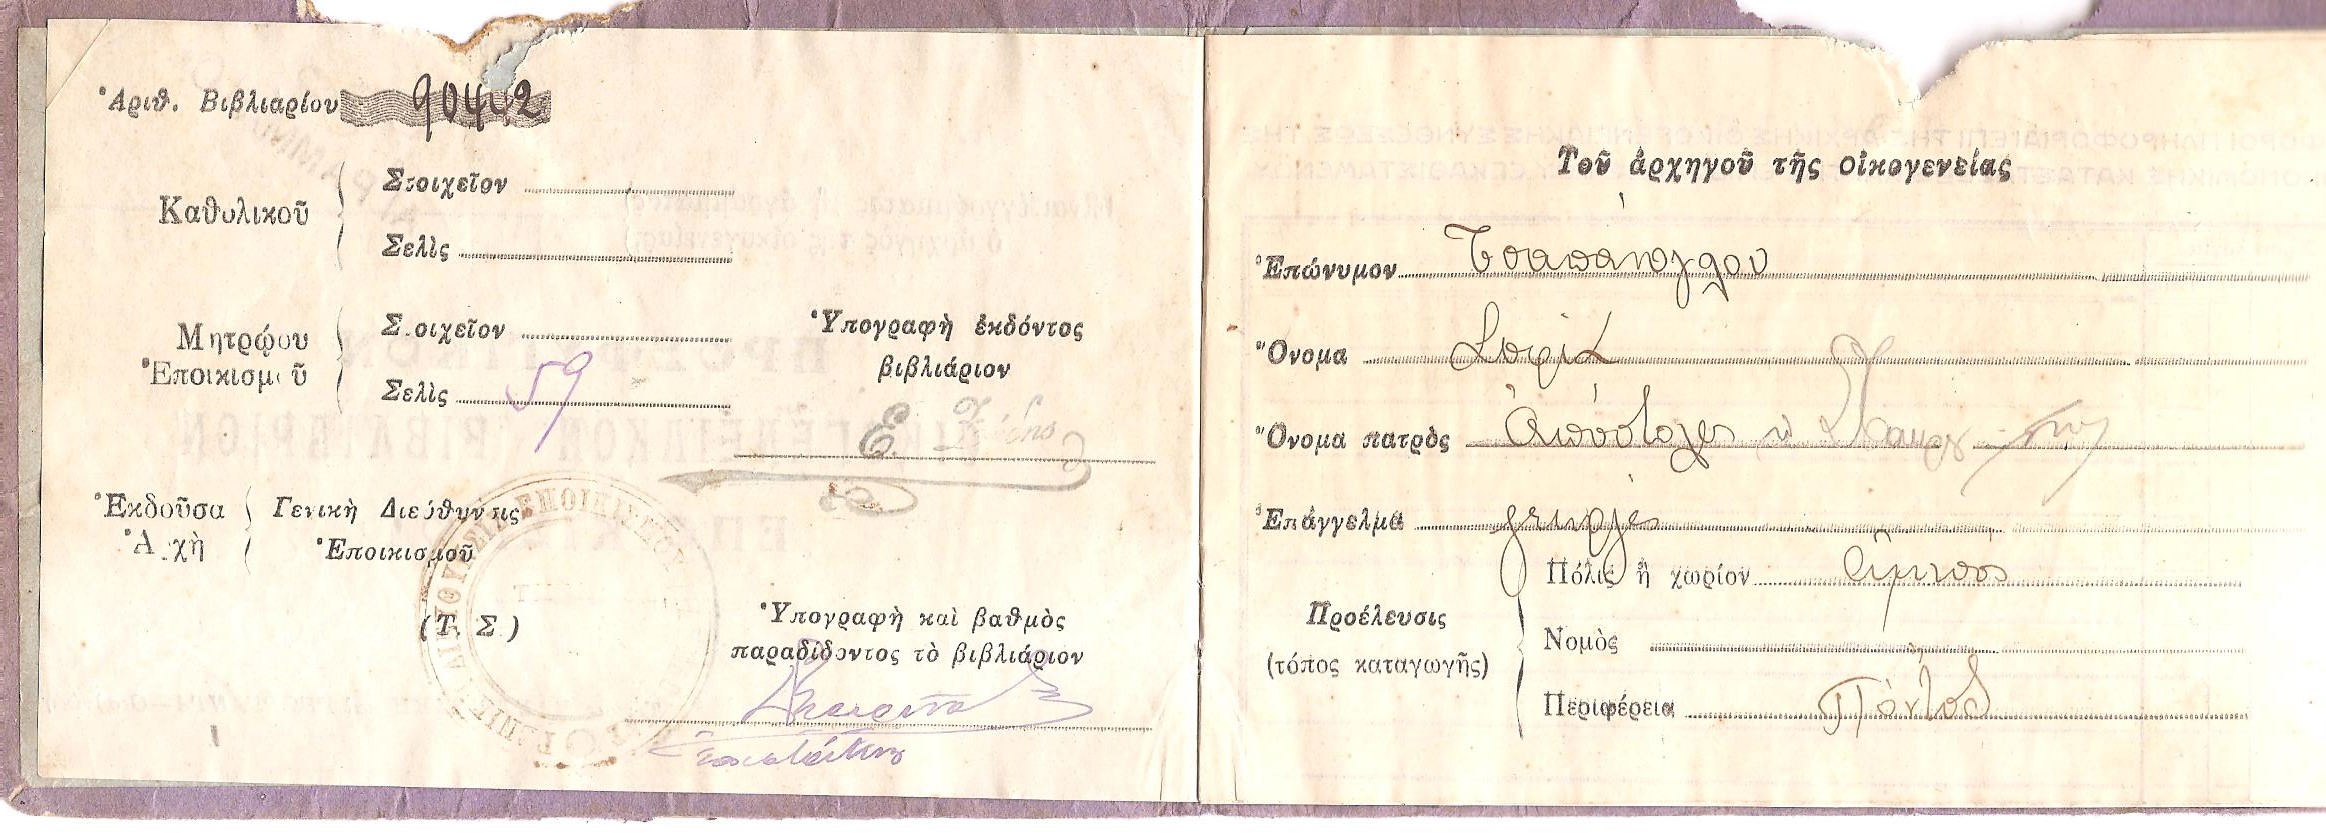 Ἀριθ. Βιβλιαρίου 90442
Καθολικοῦ
Στοιχεῖον
Σελὶς
Μητρῴου
Ἐποικισμοῦ
Στοιχεῖον
Σελὶς 59
Ὑπογραφὴ ἐκδόντος
βιβλιάριον
Ε.
Ἐκδοῦσα
Ἀρχὴ
Γενικὴ Διεύθυνσις
Ἐποικισμοῦ
(Τ. Σ)
Ὑπογραφὴ καὶ βαθμὸς
παραδίδοντος τὸ βιβλιάριον
Τοῦ ἀρχηγοῦ τῆς οἰκογενείας
Ἐπώνυμον Τσαπάνογλου
Ὄνομα Σοφία
Ὄνομα πατρὸς Ἀπόστολος
Ἐπάγγελμα γεωργός
Προέλευσις
(τόπος καταγωγῆς)
Πόλις ἢ χωρίον
Νομὸς
Περιφέρεια Πόντος